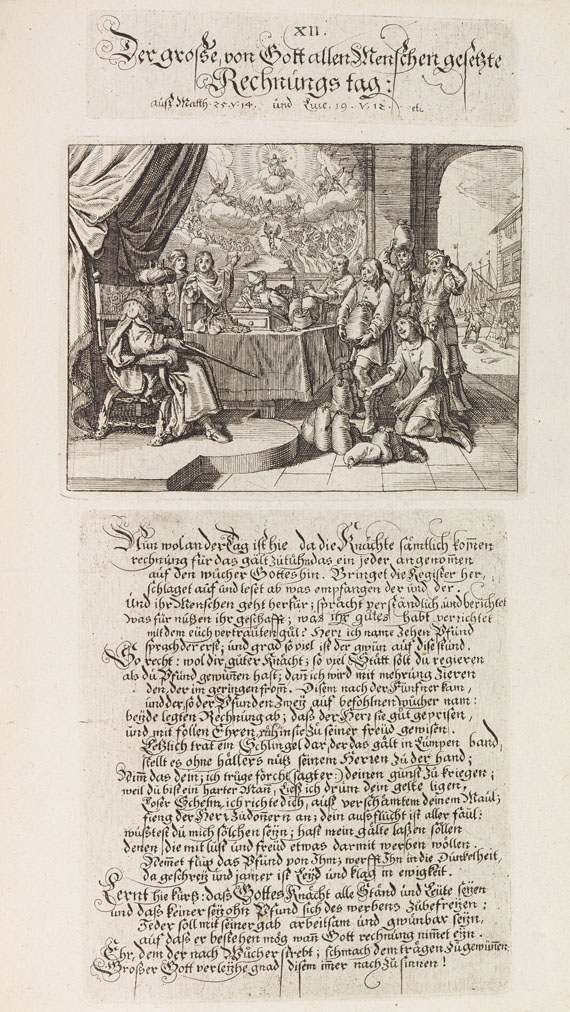 XII.
Der große, von Gott allen Menschen gesetzte
Rechnungs tag:
auß Matth. 25. v. 14. und Luc. 19. v. 12. etc.
Nun wolan der Tag ist hie da die Knächte sämtlich kom̄en
rechnung für das gält zutůhn das ein jeder angenom̄en
auf den wůcher Gottes hin. Bringet die Register her,
schlaget auf und leset ab was empfangen der und der.
Und ihr Menschen geht herfür; sprächt verständlich, und berichtet
was für nützen ihr geschafft; was ihr gůtes habt verrichtet
mit dem eüch vertrauten gůt? Herr ich name Zehen Pfund
sprach der erst; und grad so viel ist der gwün auf dise stund.
So recht: wol dir gůter Knächt; so viel Stätt solt du regieren
als du Pfund gewun̄en hast; dan̄ ich wird mit mehrung zieren
den, der im geringen from̄. Disem nach der Fünfner kam,
und der, so der Pfunden Zwey auf befohlnen wůcher nam:
beyde legten Rechnung ab; daß der Herr sie gůt geprisen,
und mit follen Ehren, sie zu seiner freüd gewisen.
Letzlich trat ein Schlingel dar, der das gält in Lümpen band,
stellt es ohne hallers nutz seinem Herren zu der hand;
Nim̄ das dein; ich trüge forcht (sagt er:) deinen gunst zu kriegen;
weil du bist ein harter Man̄, Ließ ich drum dein gelte ligen,
Loser Schelm, ich richte dich, auß verschämtem deinem Maul;
fieng der Herr zudonern an; dein außflucht ist aller faul:
wußtest du mich solchen seyn; hast mein gälte laßen sollen
denen die mit lust und freüd etwas darmit werben wöllen.
Nemet flux das Pfund von Ihm; werfft Ihn in die Dunkelheit,
da geschrey und jamer ist Leyd und klag in ewigkeit.
Lernt hie kurtz: daß Gottes Knächt alle Ständ und Leüte seyen
und daß keiner sey ohn Pfund sich des werbens Zůbefreyen:
Jeder soll mit seiner gab arbeitsam und gwünbar seyn,
auf daß er bestehen mög wan̄ Gott rechnung nim̄et eyn.
Ehr, dem der nach Wůcher strebt; schmach dem trägen Zů gewün̄en:
Großer Gott verleyhe gnad disem im̄er nach zu sinnen!